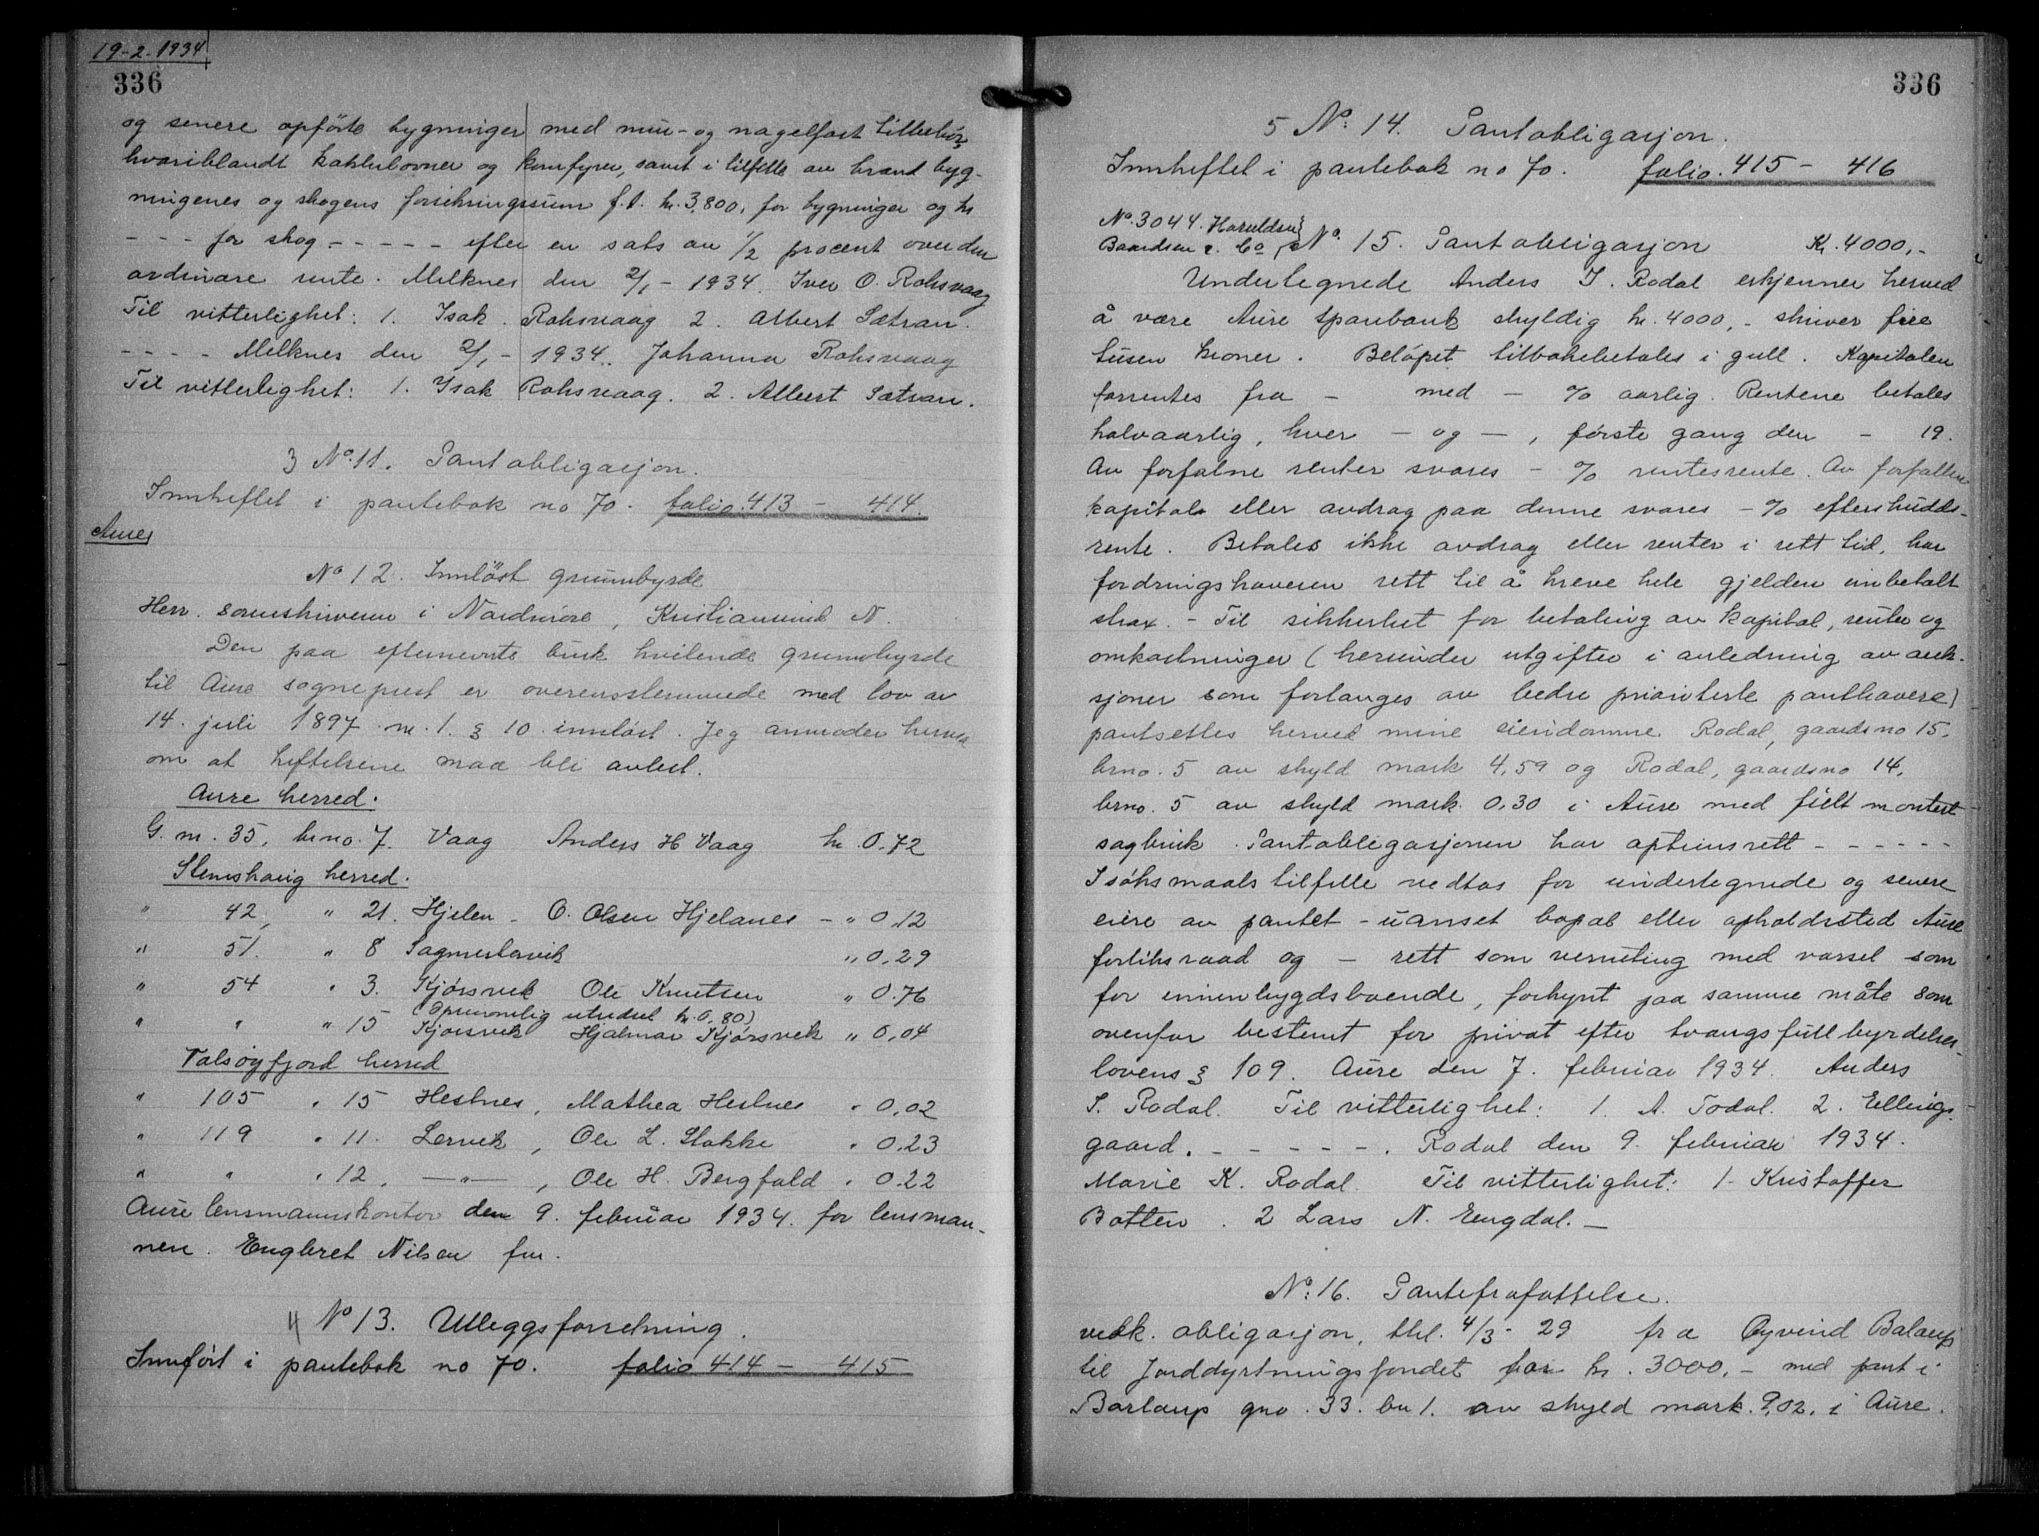 19-2-1934
336
og senere opførte bygninger med mur- og nagelfast tilbehør,
hvoriblandt kakkelovner og komfyrer, samt i tilfelle av brand byg-
ningenes og skogens forsikringssum f.t. kr. 3,800, for bygninger og kr
- - - for skog - - - - - efter en sats av 1/2 procent over den
ordinære rente. Melknes den 2/1 - 1934. Iver O. Rohsvaag
Til vitterlighet: 1. Isak Rohsvaag 2. Albert Sætran.
- - - - Melknes den 2/1 - 1934. Johanna Rohsvaag
Til vitterlighet: 1. Isak Rohsvaag. 2. Albert Sætran.
3 No. 11. Pantobligasjon.
Innheftet i pantebok no 70. folio. 413 - 414.
Aure
No 12. Innløst grunnbyrde
Herr sorenskriveren i Nordmøre, Kristiansund N.
Den paa efternevnte bruk hvilende grunnbyrde
til Aure sogneprest er overensstemmende med lov av
14. juli 1897 nr. 1. § 10 innløst. Jeg anmoder herved
om at heftelsene maa bli avlest.
Aure herred.
G. nr. 35, brno. 7. Vaag Anders H Vaag kr. 0.72
Stemshaug herred.
" 42, " 21. Hjelen - O. Olsen Hjelanes - " 0,12
" 51. " 8 Sagmestervik " 0,29
" 54 " 3. Kjørsvek Ole Knutsen " 0.76
(Oprinnelig utredet kr 0,80)
" " " 15 Kjørsvek Hjalmar Kjørsvek " 0,04
Valsøyfjord herred
" 105 " 15 Hestnes, Mathea Hestnes " 0,02
" 119 " 11. Lervik, Ole L. Stokke " 0.23
" " " 12, —"—, Ole H. Bergfald " 0.22
Aure lensmannskontor den 9. februar 1934. for lensman-
nen. Engbret Nilsen fm.
4 No 13. Utleggsforretning.
Innført i pantebok no 70. folio 414 - 415
336
5 No. 14. Pantobligasjon.
Innheftet i pantebok no 70. folio. 415 - 416
No. 3044. Haraldsen
Baardsen & Co, No. 15. Pantobligasjon Kr. 4000,-
Underlegnede Anders I. Rodal erkjenner herved
å være Aure sparebank skyldig kr. 4000,- skriver fire
tusen kroner. Beløpet tilbakebetales i gull. Kapitalen
forrentes fra - med - % aarlig. Rentene betales
halvaarlig, hver - og -, første gang den - 19.
Av forfalne renter svares - % rentesrente. Av forfallen
kapital eller avdrag paa denne svares - % efterskudds-
rente. Betales ikke avdrag eller renter i rett tid, har
fordringshaveren rett til å kreve hele gjelden innbetalt
strax. - Til sikkerhet for betaling av kapital, renter og
omkostninger (herunder utgifter i anledning av auk-
sjoner som forlanges av bedre prioriterte panthavere)
pantsettes herved mine eiendomme Rodal, gaardsno 15,
brno. 5 av skyld mark 4,59 og Rodal, gaardsno 14,
brno. 5 av skyld mark 0,30 i Aure med fullt montert
sagbruk. Pantobligasjonen har optrinsrett - - - - -
I søksmaals tilfelle vedtas for undertegnede og senere
eiere av pantet - uanset bopæl eller opholdssted Aure
forliksraad og - rett som verneting med varsel som
for innenbygdsboende, forkynt paa samme måte som
ovenfor bestemt for privat efter tvangsfullbyrdelses-
lovens § 109. Aure den 7. februar 1934. Anders
I. Rodal. Til vitterlighet: 1. A. Todal. 2. Ellings-
gaard. - - - - - . Rodal den 9. februar 1934.
Marie K. Rodal. Til vitterlighet: 1. Kristoffer
Botten. 2 Lars N. Engdal. -
No. 16. Pantefrafattelse.
vedk. obligasjon, thl. 4/3 - 29 fra Øyvind Balaup
til Jorddyrkningsfondet for kr. 3000,- med pant i
Barlaup gno. 33. bn 1. av skyld mark 9,02, i Aure.